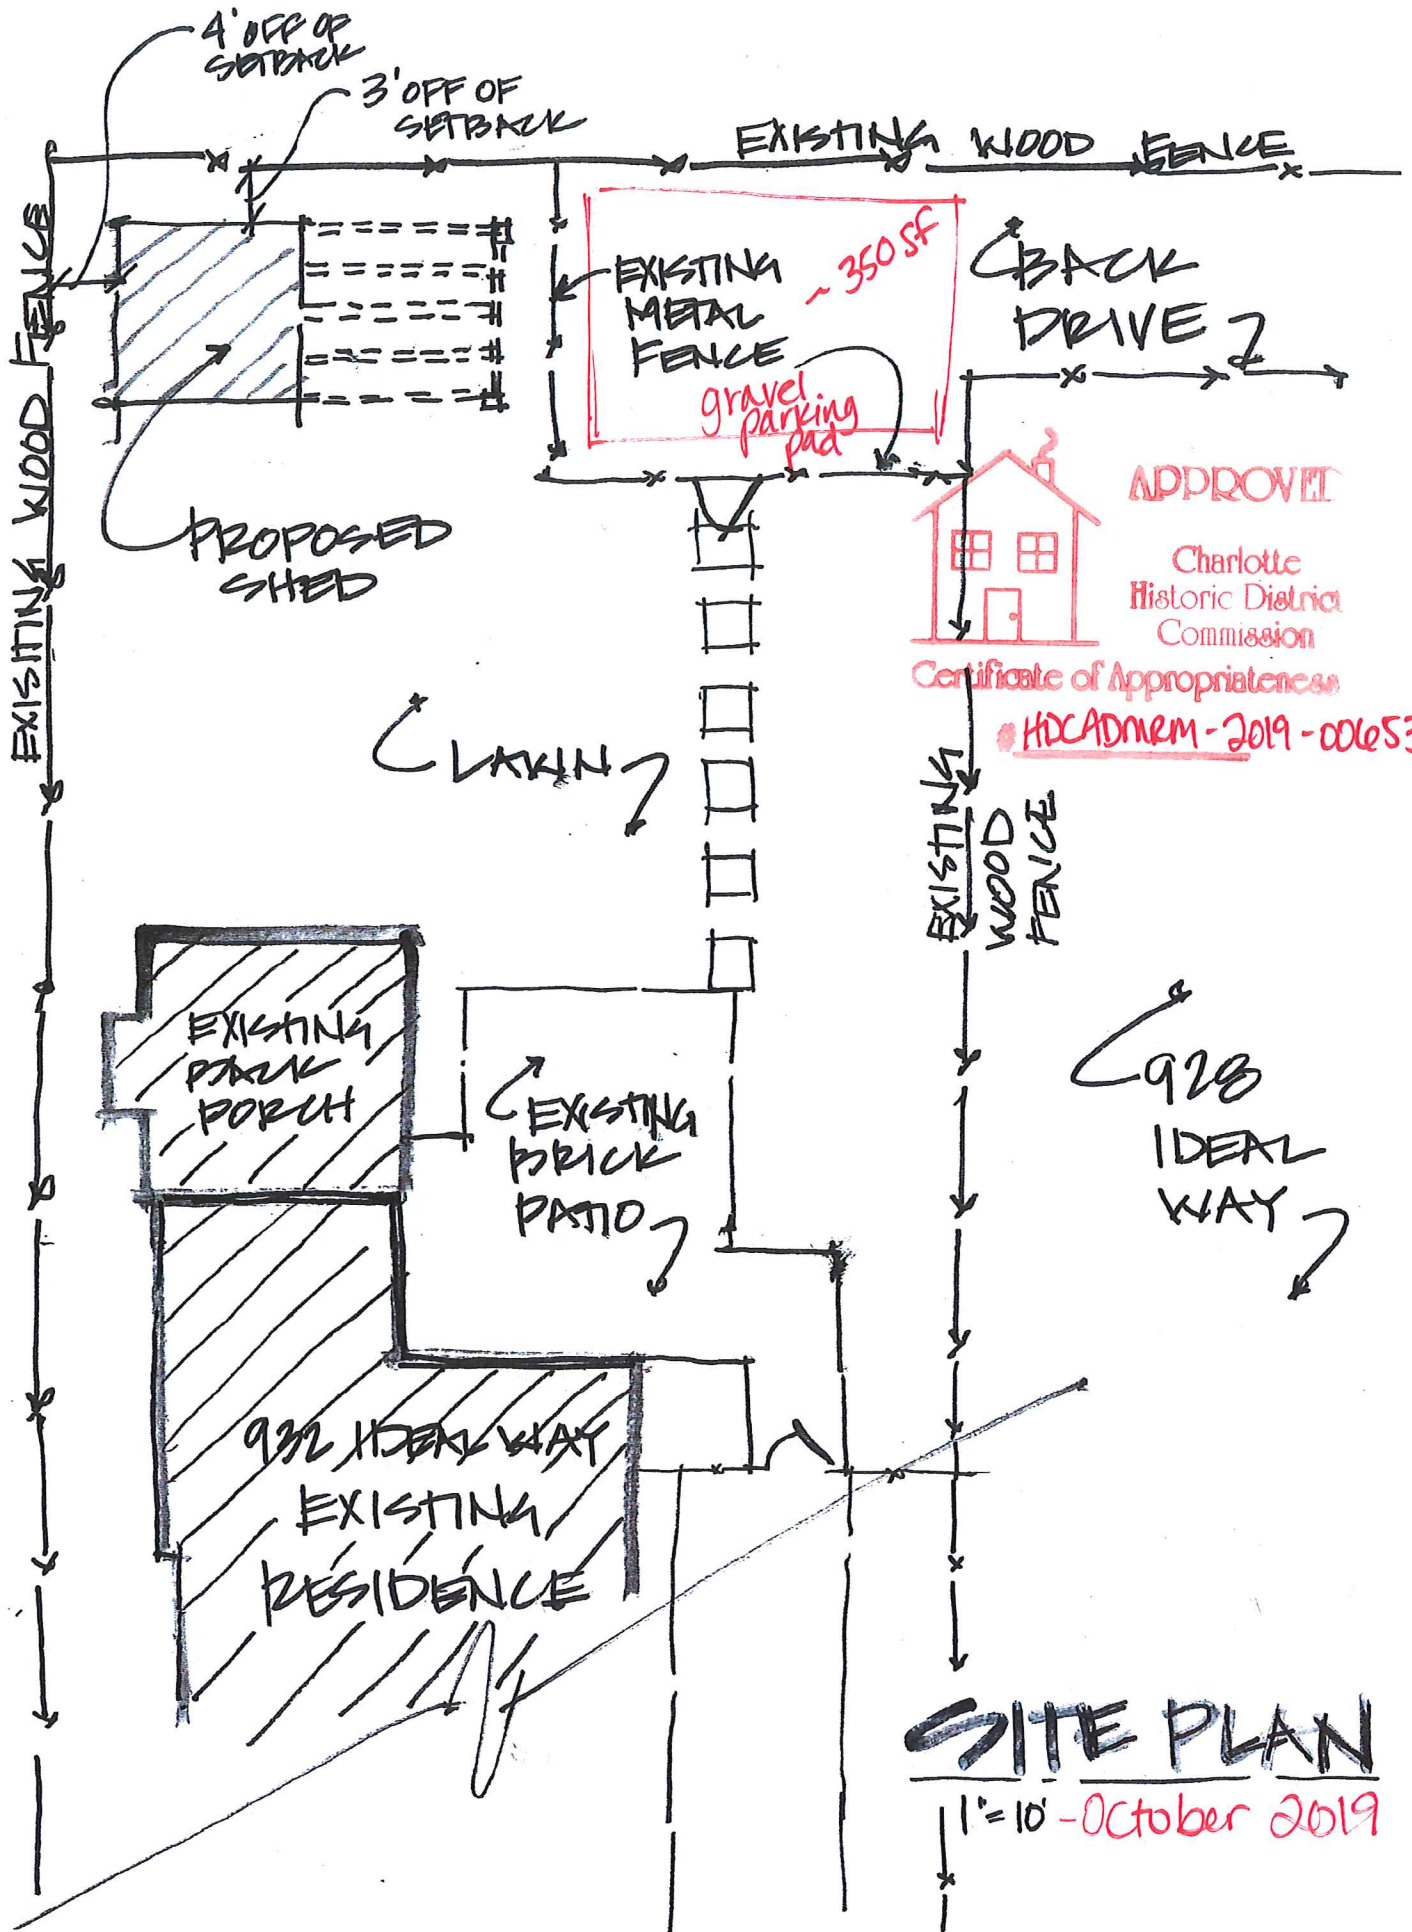 4' OFF OF
SETBACK
3' OFF OF
SETBACK
EXISTING WOOD FENCE
EXISTING WOOD FENCE
EXISTING
METAL
FENCE
~350 SF
gravel
parking
pad
BACK
DRIVE
PROPOSED
SHED
APPROVED
Charlotte
Historic District
Commission
Certificate of Appropriateness
HDCADMRM-2019-00653
LAWN
EXISTING
WOOD
FENCE
EXISTING
BACK
PORCH
EXISTING
BRICK
PATIO
928
IDEAL
WAY
932 IDEAL WAY
EXISTING
RESIDENCE
SITE PLAN
1"=10' - October 2019